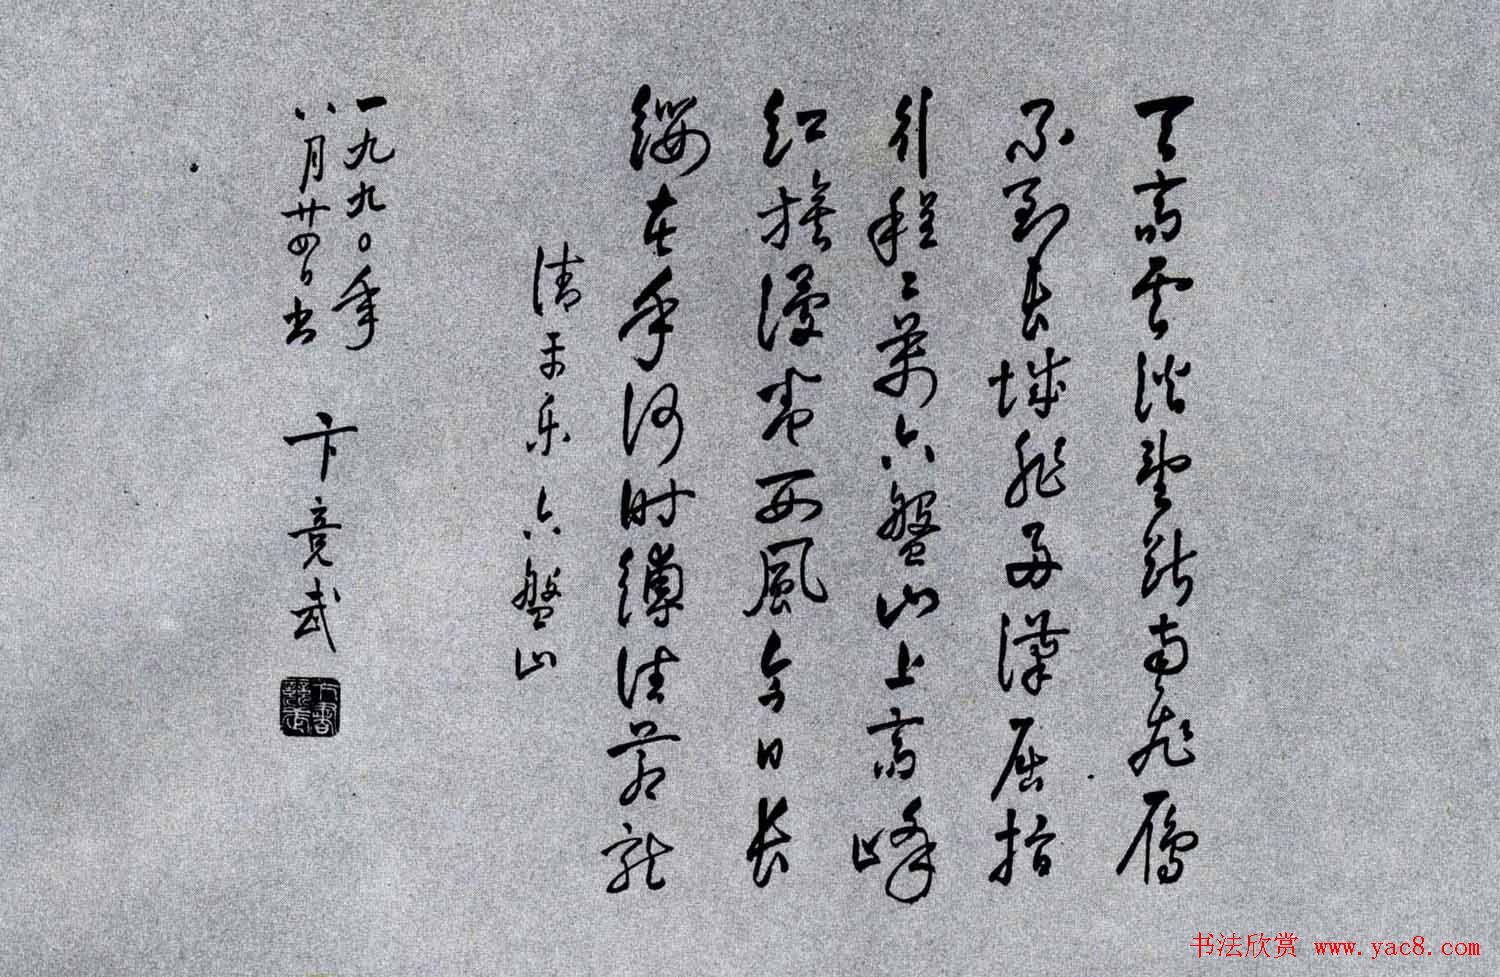 天高雲淡望斷南飛雁
不到長城非好漢屈指
行程二萬六盤山上高峰
紅旗漫卷西風今日長
纓在手何時縛住蒼龍
清平乐 六盤山
一九九〇年
八月廿四日书 卞竟武
书法欣赏 www.yac8.com